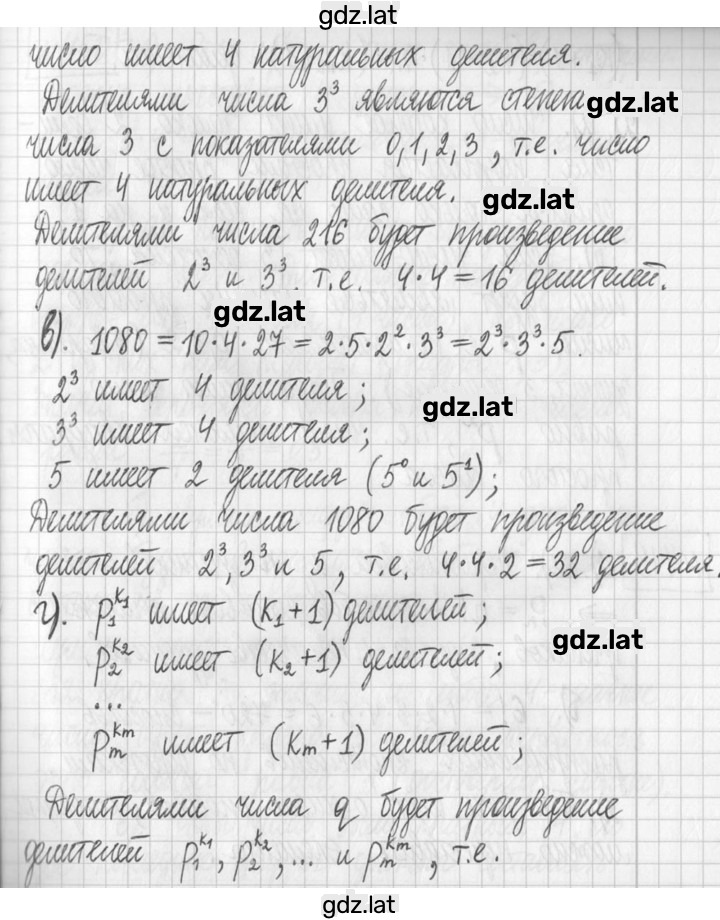 gdz.lat
число имеет 4 натуральных делителя.
Делителями числа 3³ являются степени gdz.lat
числа 3 с показателями 0,1,2,3, т.е. число
имеет 4 натуральных делителя. gdz.lat
Делителями числа 216 будет произведение
делителей 2³ и 3³. т.е. 4·4=16 делителей.
gdz.lat
в). 1080=10·4·27=2·5·2²·3³=2³·3³·5.
2³ имеет 4 делителя;
gdz.lat
3³ имеет 4 делителя;
5 имеет 2 делителя (5⁰ и 5¹);
Делителями числа 1080 будет произведение
делителей 2³, 3³ и 5, т.е. 4·4·2=32 делителя.
г). p₁^k₁ имеет (k₁+1) делителей;
gdz.lat
p₂^k₂ имеет (k₂+1) делителей;
...
pₘ^kₘ имеет (kₘ+1) делителей;
Делителями числа q будет произведение
делителей p₁^k₁, p₂^k₂, ... и pₘ^kₘ, т.е.
gdz.lat